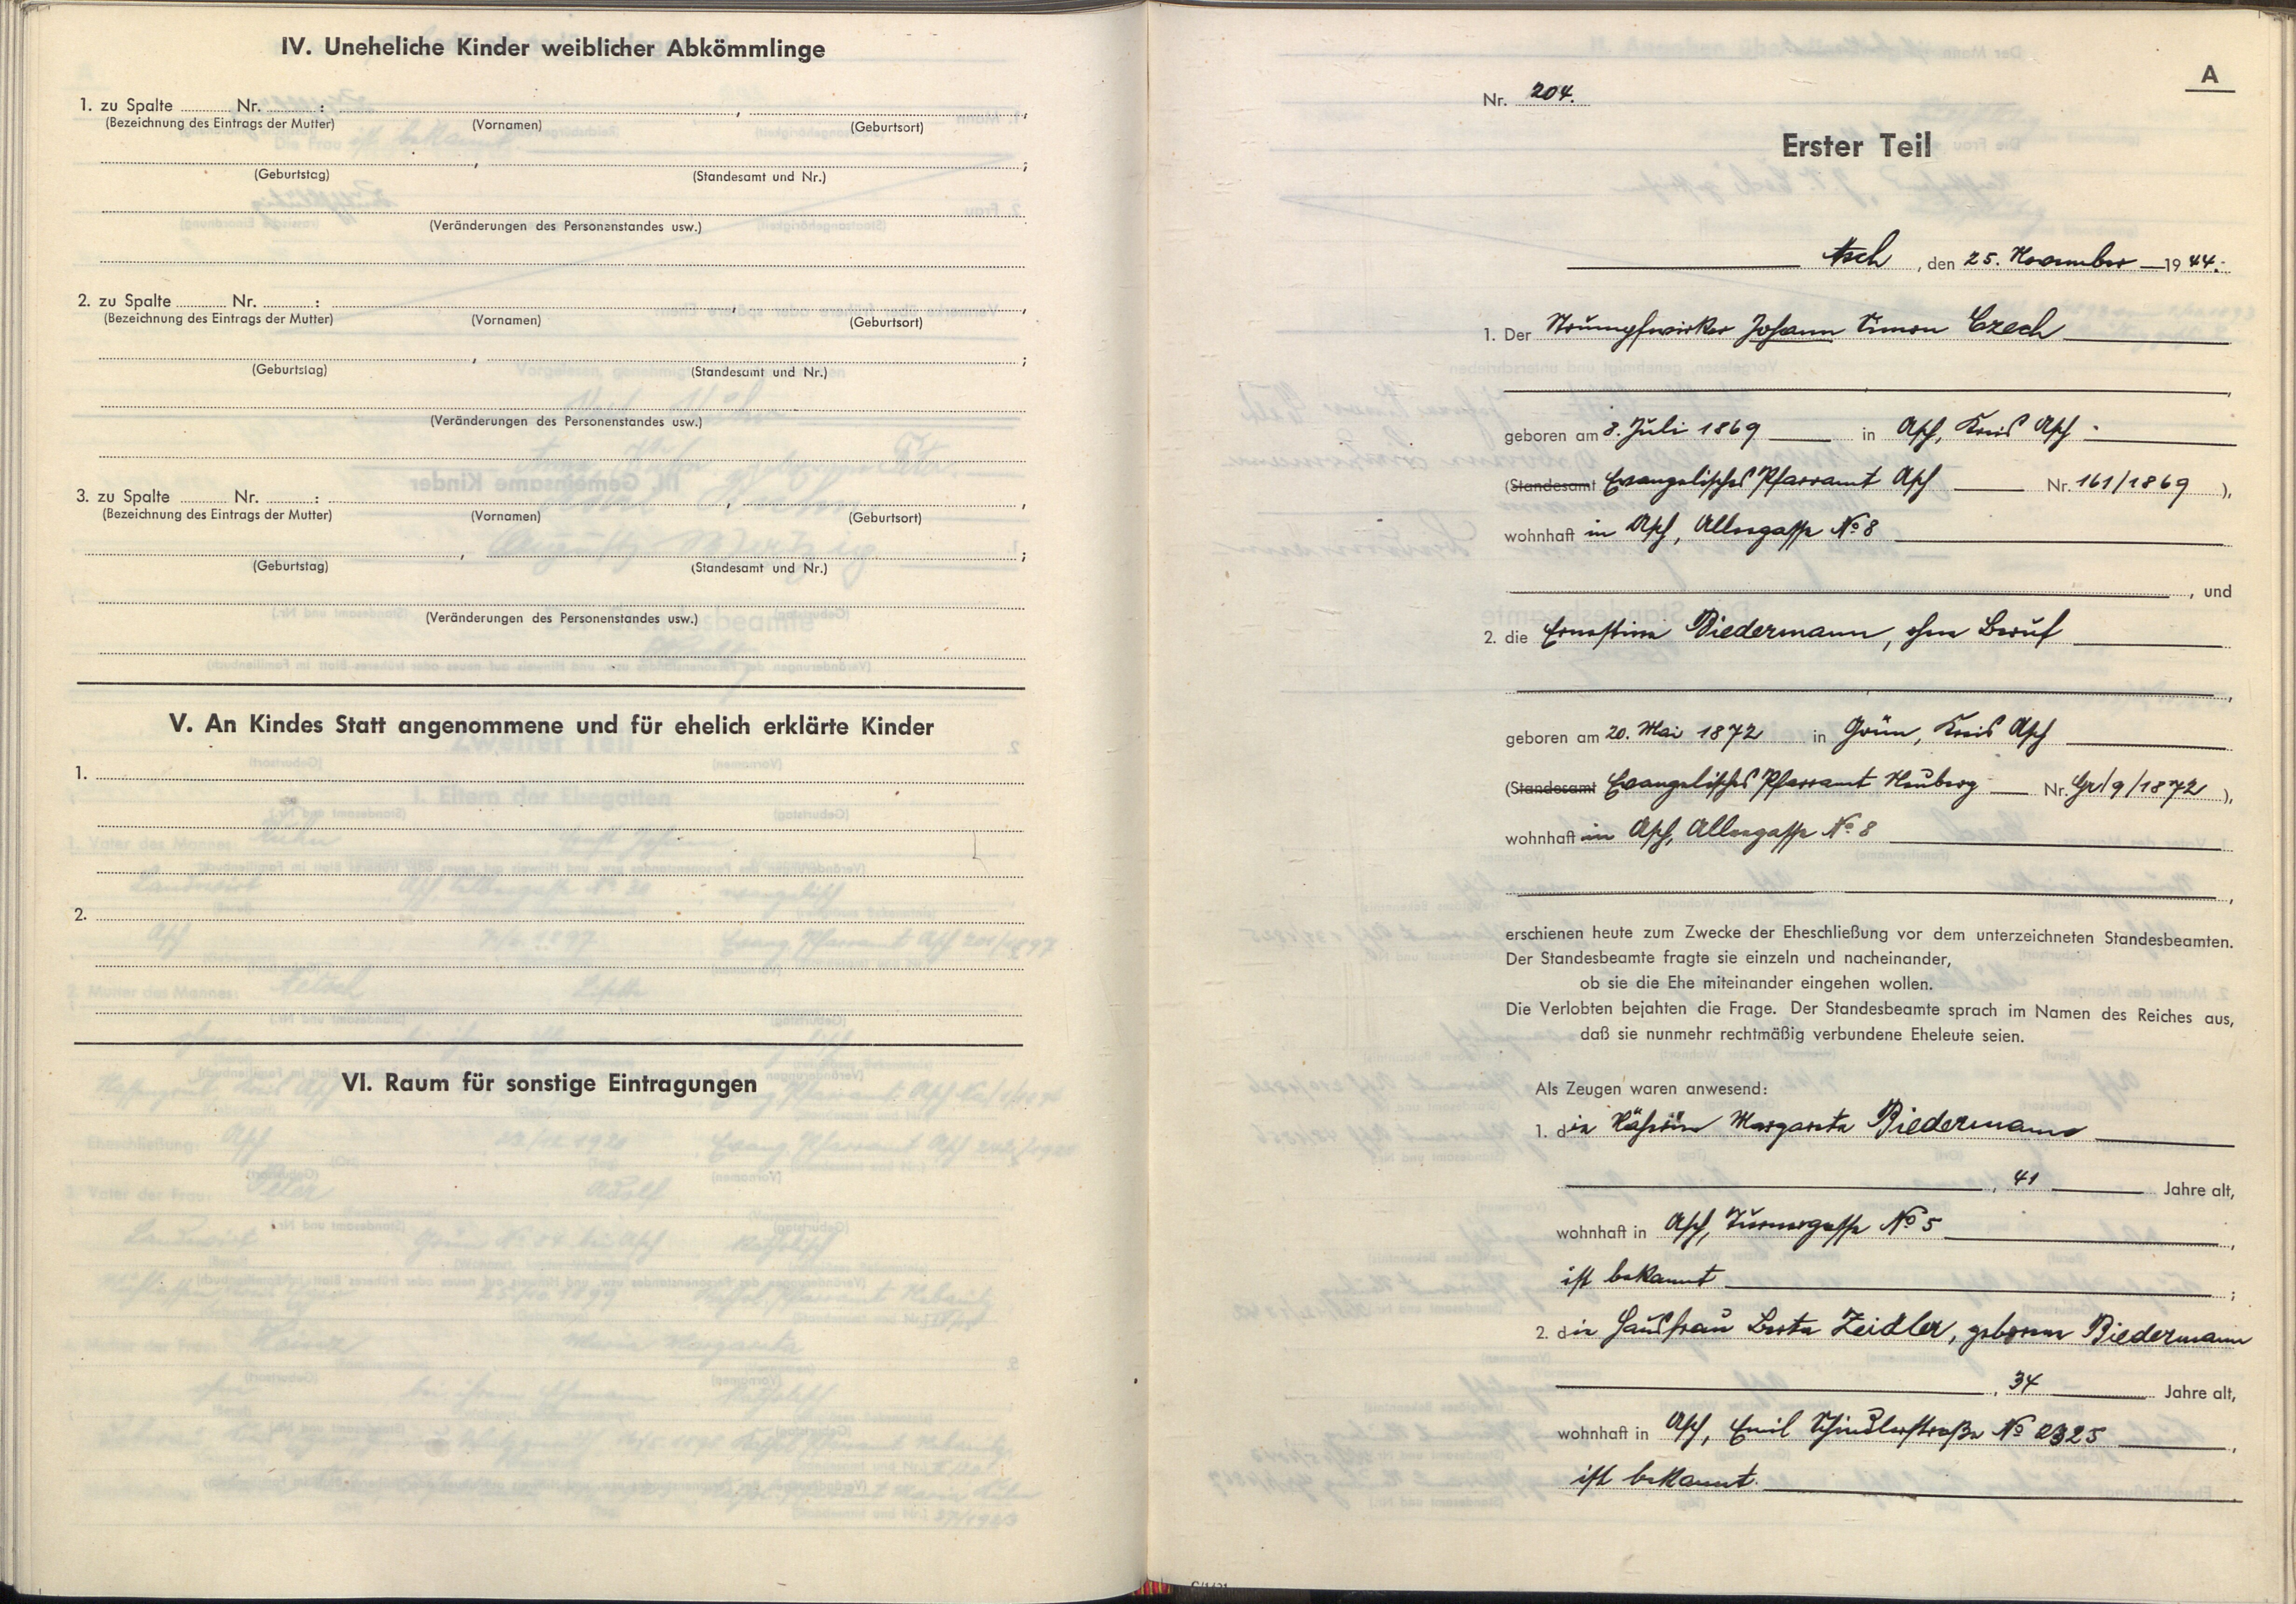 IV. Uneheliche Kinder weiblicher Abkömmlinge
1. zu Spalte Nr. : , ,
(Bezeichnung des Eintrags der Mutter) (Vornamen) (Geburtsort)
, ;
(Geburtstag) (Standesamt und Nr.)
(Veränderungen des Personenstandes usw.)
2. zu Spalte Nr. : , ,
(Bezeichnung des Eintrags der Mutter) (Vornamen) (Geburtsort)
, ;
(Geburtstag) (Standesamt und Nr.)
(Veränderungen des Personenstandes usw.)
3. zu Spalte Nr. : , ,
(Bezeichnung des Eintrags der Mutter) (Vornamen) (Geburtsort)
, ;
(Geburtstag) (Standesamt und Nr.)
(Veränderungen des Personenstandes usw.)
V. An Kindes Statt angenommene und für ehelich erklärte Kinder
1.
2.
VI. Raum für sonstige Eintragungen
A
Nr. 204.
Erster Teil
Asch, den 25. November 1944.
1. Der Strumpfwirker Johann Simon Czech
geboren am 8. Juli 1869 in Asch, Kreis Asch
(Standesamt Evangelisches Pfarramt Asch Nr. 161/1869 ),
wohnhaft in Asch, Allergasse No 8
, und
2. die Ernestine Biedermann, ohne Beruf
,
geboren am 20. Mai 1872 in Grün, Kreis Asch
(Standesamt Evangelisches Pfarramt Neuberg Nr. Gr/9/1872 ),
wohnhaft in Asch, Allergasse No 8
,
erschienen heute zum Zwecke der Eheschließung vor dem unterzeichneten Standesbeamten.
Der Standesbeamte fragte sie einzeln und nacheinander,
ob sie die Ehe miteinander eingehen wollen.
Die Verlobten bejahten die Frage. Der Standesbeamte sprach im Namen des Reiches aus,
daß sie nunmehr rechtmäßig verbundene Eheleute seien.
Als Zeugen waren anwesend:
1. die Näherin Margareta Biedermann
, 41 Jahre alt,
wohnhaft in Asch, Turnergasse No 5 ,
ist bekannt ;
2. die Hausfrau Berta Zeidler, geborene Biedermann
, 34 Jahre alt,
wohnhaft in Asch, Emil Schindlerstraße No 2325 ,
ist bekannt.